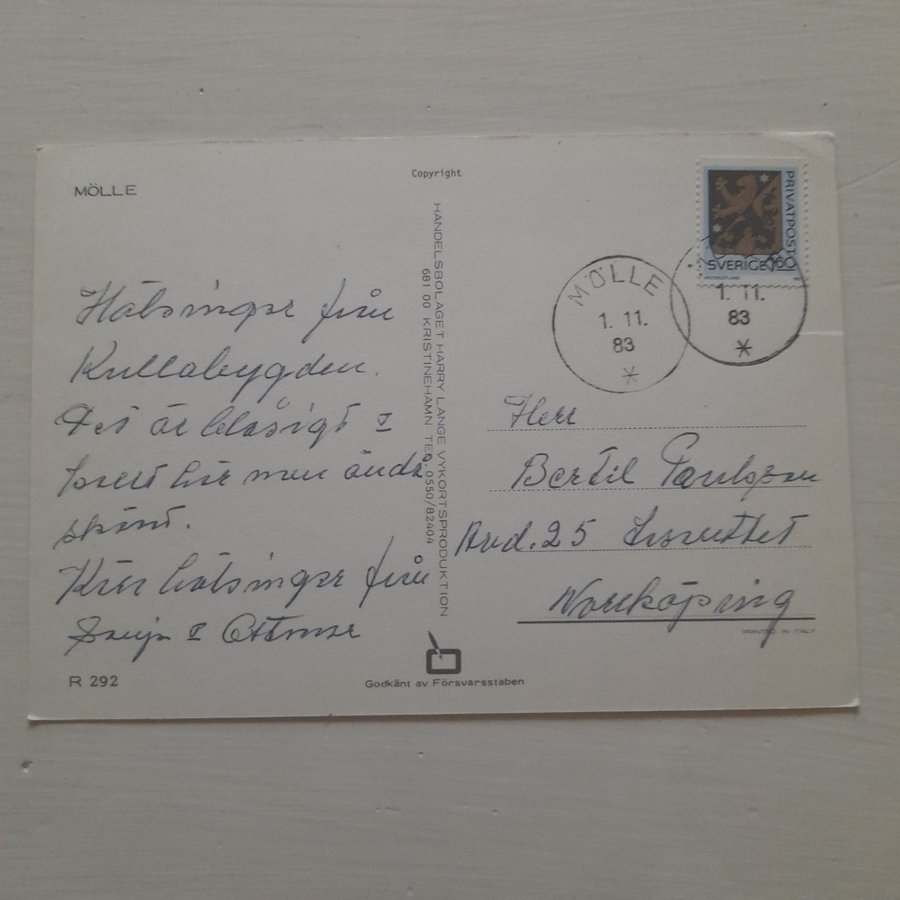 MÖLLE
Copyright
Hälsingar från
Kullabygden.
Det är blåsigt &
här men ändå
skönt.
Kära hälsingar från
& Ottmar
R 292
HANDELSBOLAGET HARRY LANGE VYKORTSPRODUKTION
681 00 KRISTINEHAMN TEL. 0550/82404
Godkänt av Försvarsstaben
PRIVATPOST
SVERIGE 1.60
MÖLLE
1. 11.
83
1. 11.
83
Herr
Bertil Paulsson
Avd. 25
Norrköping
PRINTED IN ITALY